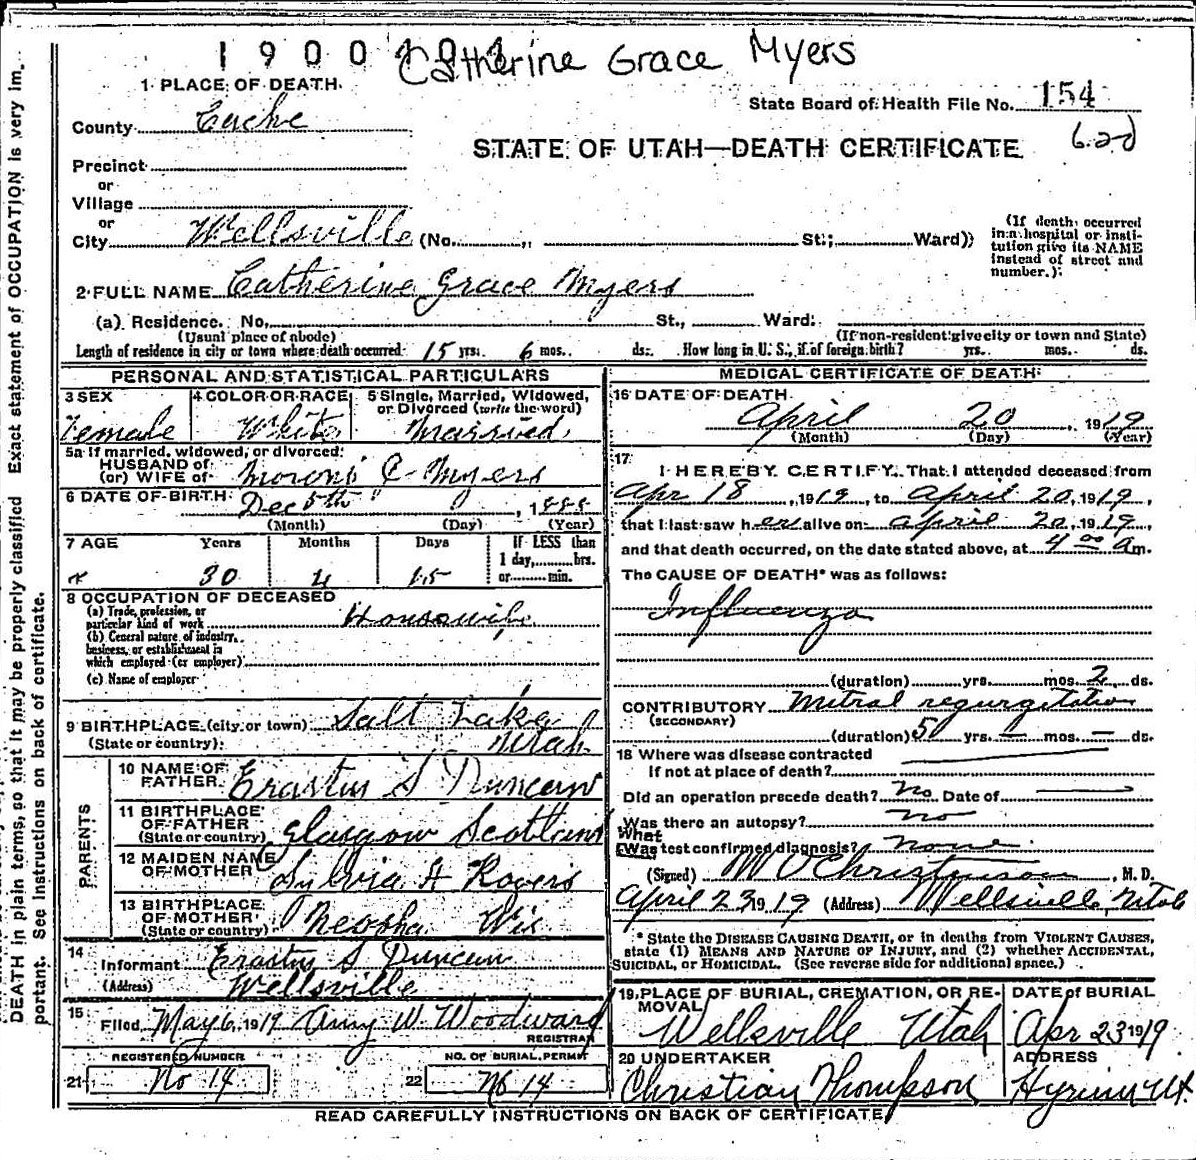 1 9 0 0
Catherine Grace Myers
1 PLACE OF DEATH.
State Board of Health File No. 154
County Cache
620
STATE OF UTAH—DEATH CERTIFICATE
Precinct
or
Village
or
City Wellsville (No. , St.; Ward)
(If death occurred in a hospital or institution give its NAME instead of street and number.)
2 FULL NAME Catherine Grace Myers
(a) Residence. No. St., Ward.
(Usual place of abode) (If non-resident give city or town and State)
Length of residence in city or town where death occurred 15 yrs. 6 mos. ds. How long in U. S., if of foreign birth? yrs. mos. ds.
PERSONAL AND STATISTICAL PARTICULARS
3 SEX Female
4 COLOR OR RACE White
5 Single, Married, Widowed, or Divorced (write the word) Married
5a If married, widowed, or divorced:
HUSBAND of
(or) WIFE of Moroni C Myers
6 DATE OF BIRTH Dec 5th , 1888
(Month) (Day) (Year)
7 AGE Years Months Days If LESS than
1 day, hrs.
or min.
30 4 15
8 OCCUPATION OF DECEASED
(a) Trade, profession, or
particular kind of work Housewife
(b) General nature of industry,
business, or establishment in
which employed (or employer)
(c) Name of employer
9 BIRTHPLACE (city or town) Salt Lake
(State or country) Utah
PARENTS
10 NAME OF
FATHER Erastus S Duncan
11 BIRTHPLACE
OF FATHER
(State or country) Glasgow Scotland
12 MAIDEN NAME
OF MOTHER Sylvia A Rogers
13 BIRTHPLACE
OF MOTHER
(State or country) Neosha Wis
14 Informant Erastus S Duncan
(Address) Wellsville
15 Filed May 6, 1919 Amy W. Woodward
REGISTRAR
REGISTERED NUMBER
21 No 14
NO. OF BURIAL PERMIT
22 No 14
MEDICAL CERTIFICATE OF DEATH
16 DATE OF DEATH
April 20 , 1919
(Month) (Day) (Year)
17
I HEREBY CERTIFY, That I attended deceased from
Apr 18 , 1919, to April 20, 1919,
that I last saw her alive on April 20, 1919,
and that death occurred, on the date stated above, at 4 00 am.
The CAUSE OF DEATH* was as follows:
Influenza
(duration) yrs. mos. 2 ds.
CONTRIBUTORY Mitral regurgitation
(SECONDARY)
(duration) yrs. — mos. — ds.
18 Where was disease contracted
If not at place of death?
Did an operation precede death? No Date of
Was there an autopsy? no
What
(Was test confirmed diagnosis? none
(Signed) M D Christenson, M. D.
April 23 1919 (Address) Wellsville, Utah
* State the DISEASE CAUSING DEATH, or in deaths from VIOLENT CAUSES,
state (1) MEANS AND NATURE OF INJURY, and (2) whether ACCIDENTAL,
SUICIDAL, or HOMICIDAL. (See reverse side for additional space.)
19 PLACE OF BURIAL, CREMATION, OR RE-
MOVAL
Wellsville Utah
DATE of BURIAL
Apr 23 1919
20 UNDERTAKER
Christian Thompson
ADDRESS
Hyrum Ut.
READ CAREFULLY INSTRUCTIONS ON BACK OF CERTIFICATE
DEATH in plain terms, so that it may be properly classified Exact statement of OCCUPATION is very im-
portant. See instructions on back of certificate.